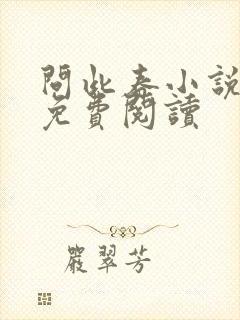 問此春小說
免費閱讀
嚴翠芳